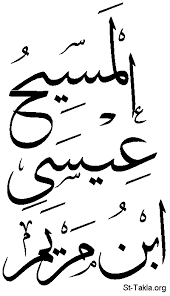 المَسِيحُ
عِيسَى
ابنُ مَريَم
St-Takla.org